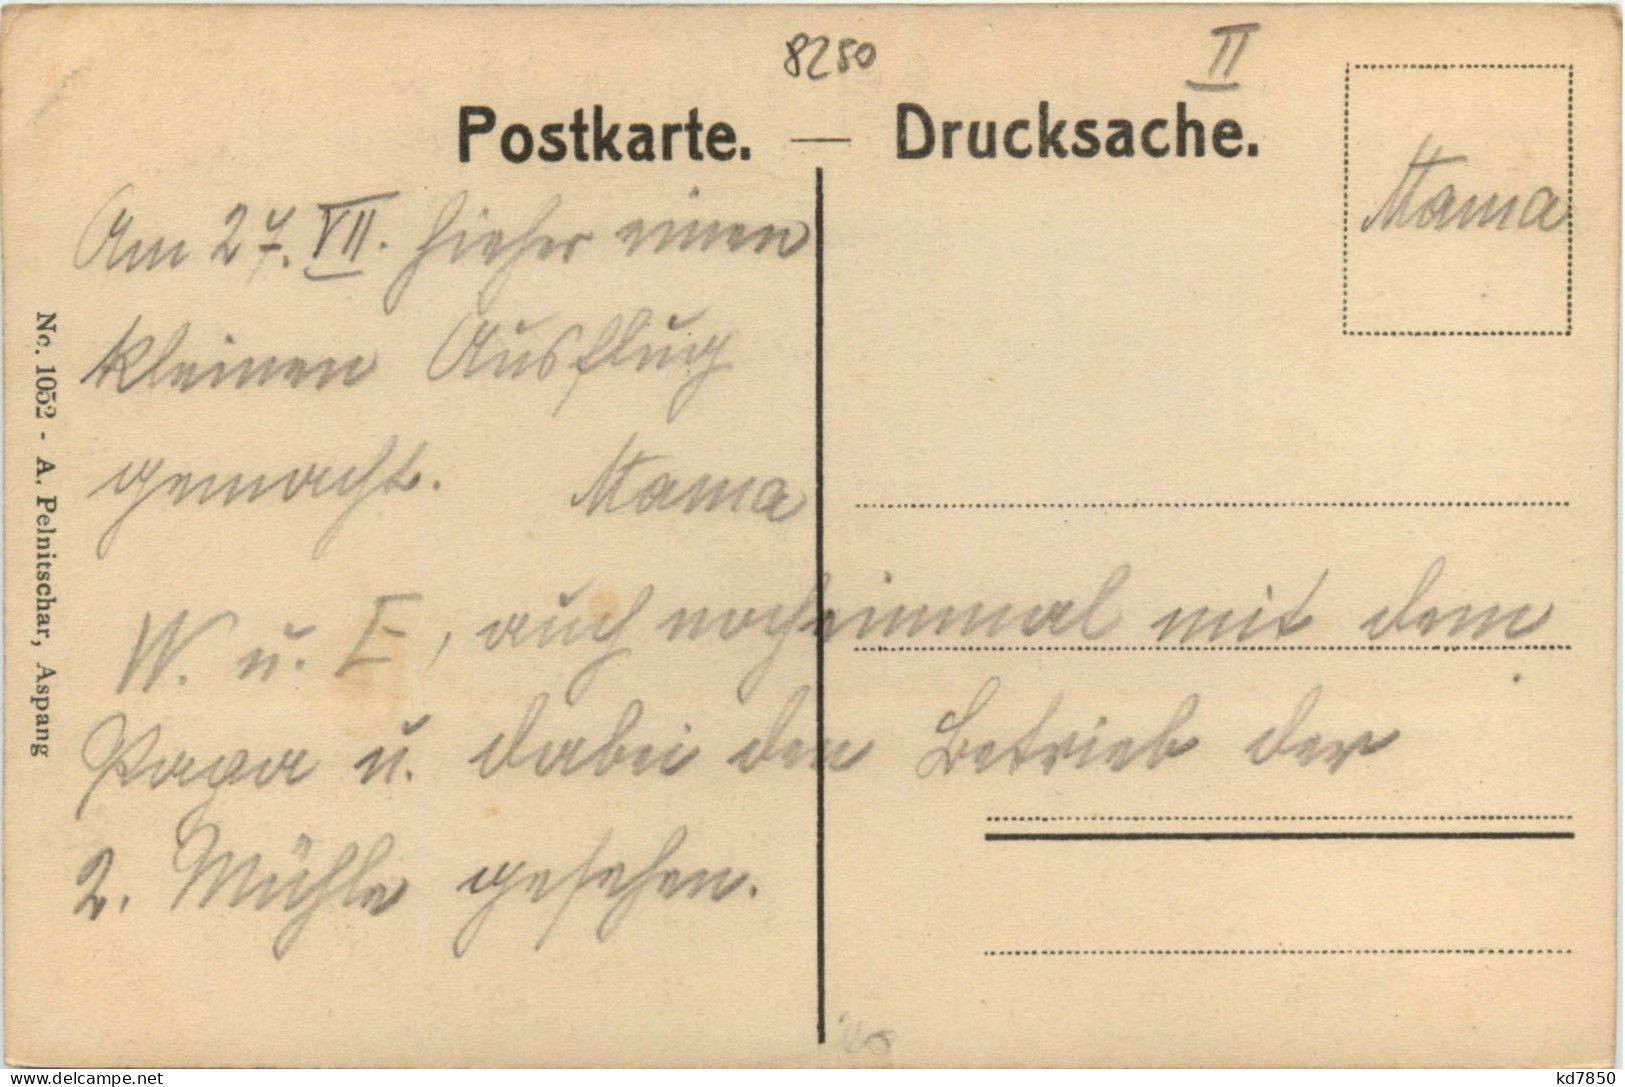 8250
II
Postkarte. — Drucksache.
Mama
Am 27. VII. hieher einen
kleinen Ausflug
gemacht. Mama
W. u. E, auch noch einmal mit dem
Papa u. dabei den Betrieb der
2. Mühle gesehen.
No. 1052 - A. Pelnitschar, Aspang
www.delcampe.net
kd7850